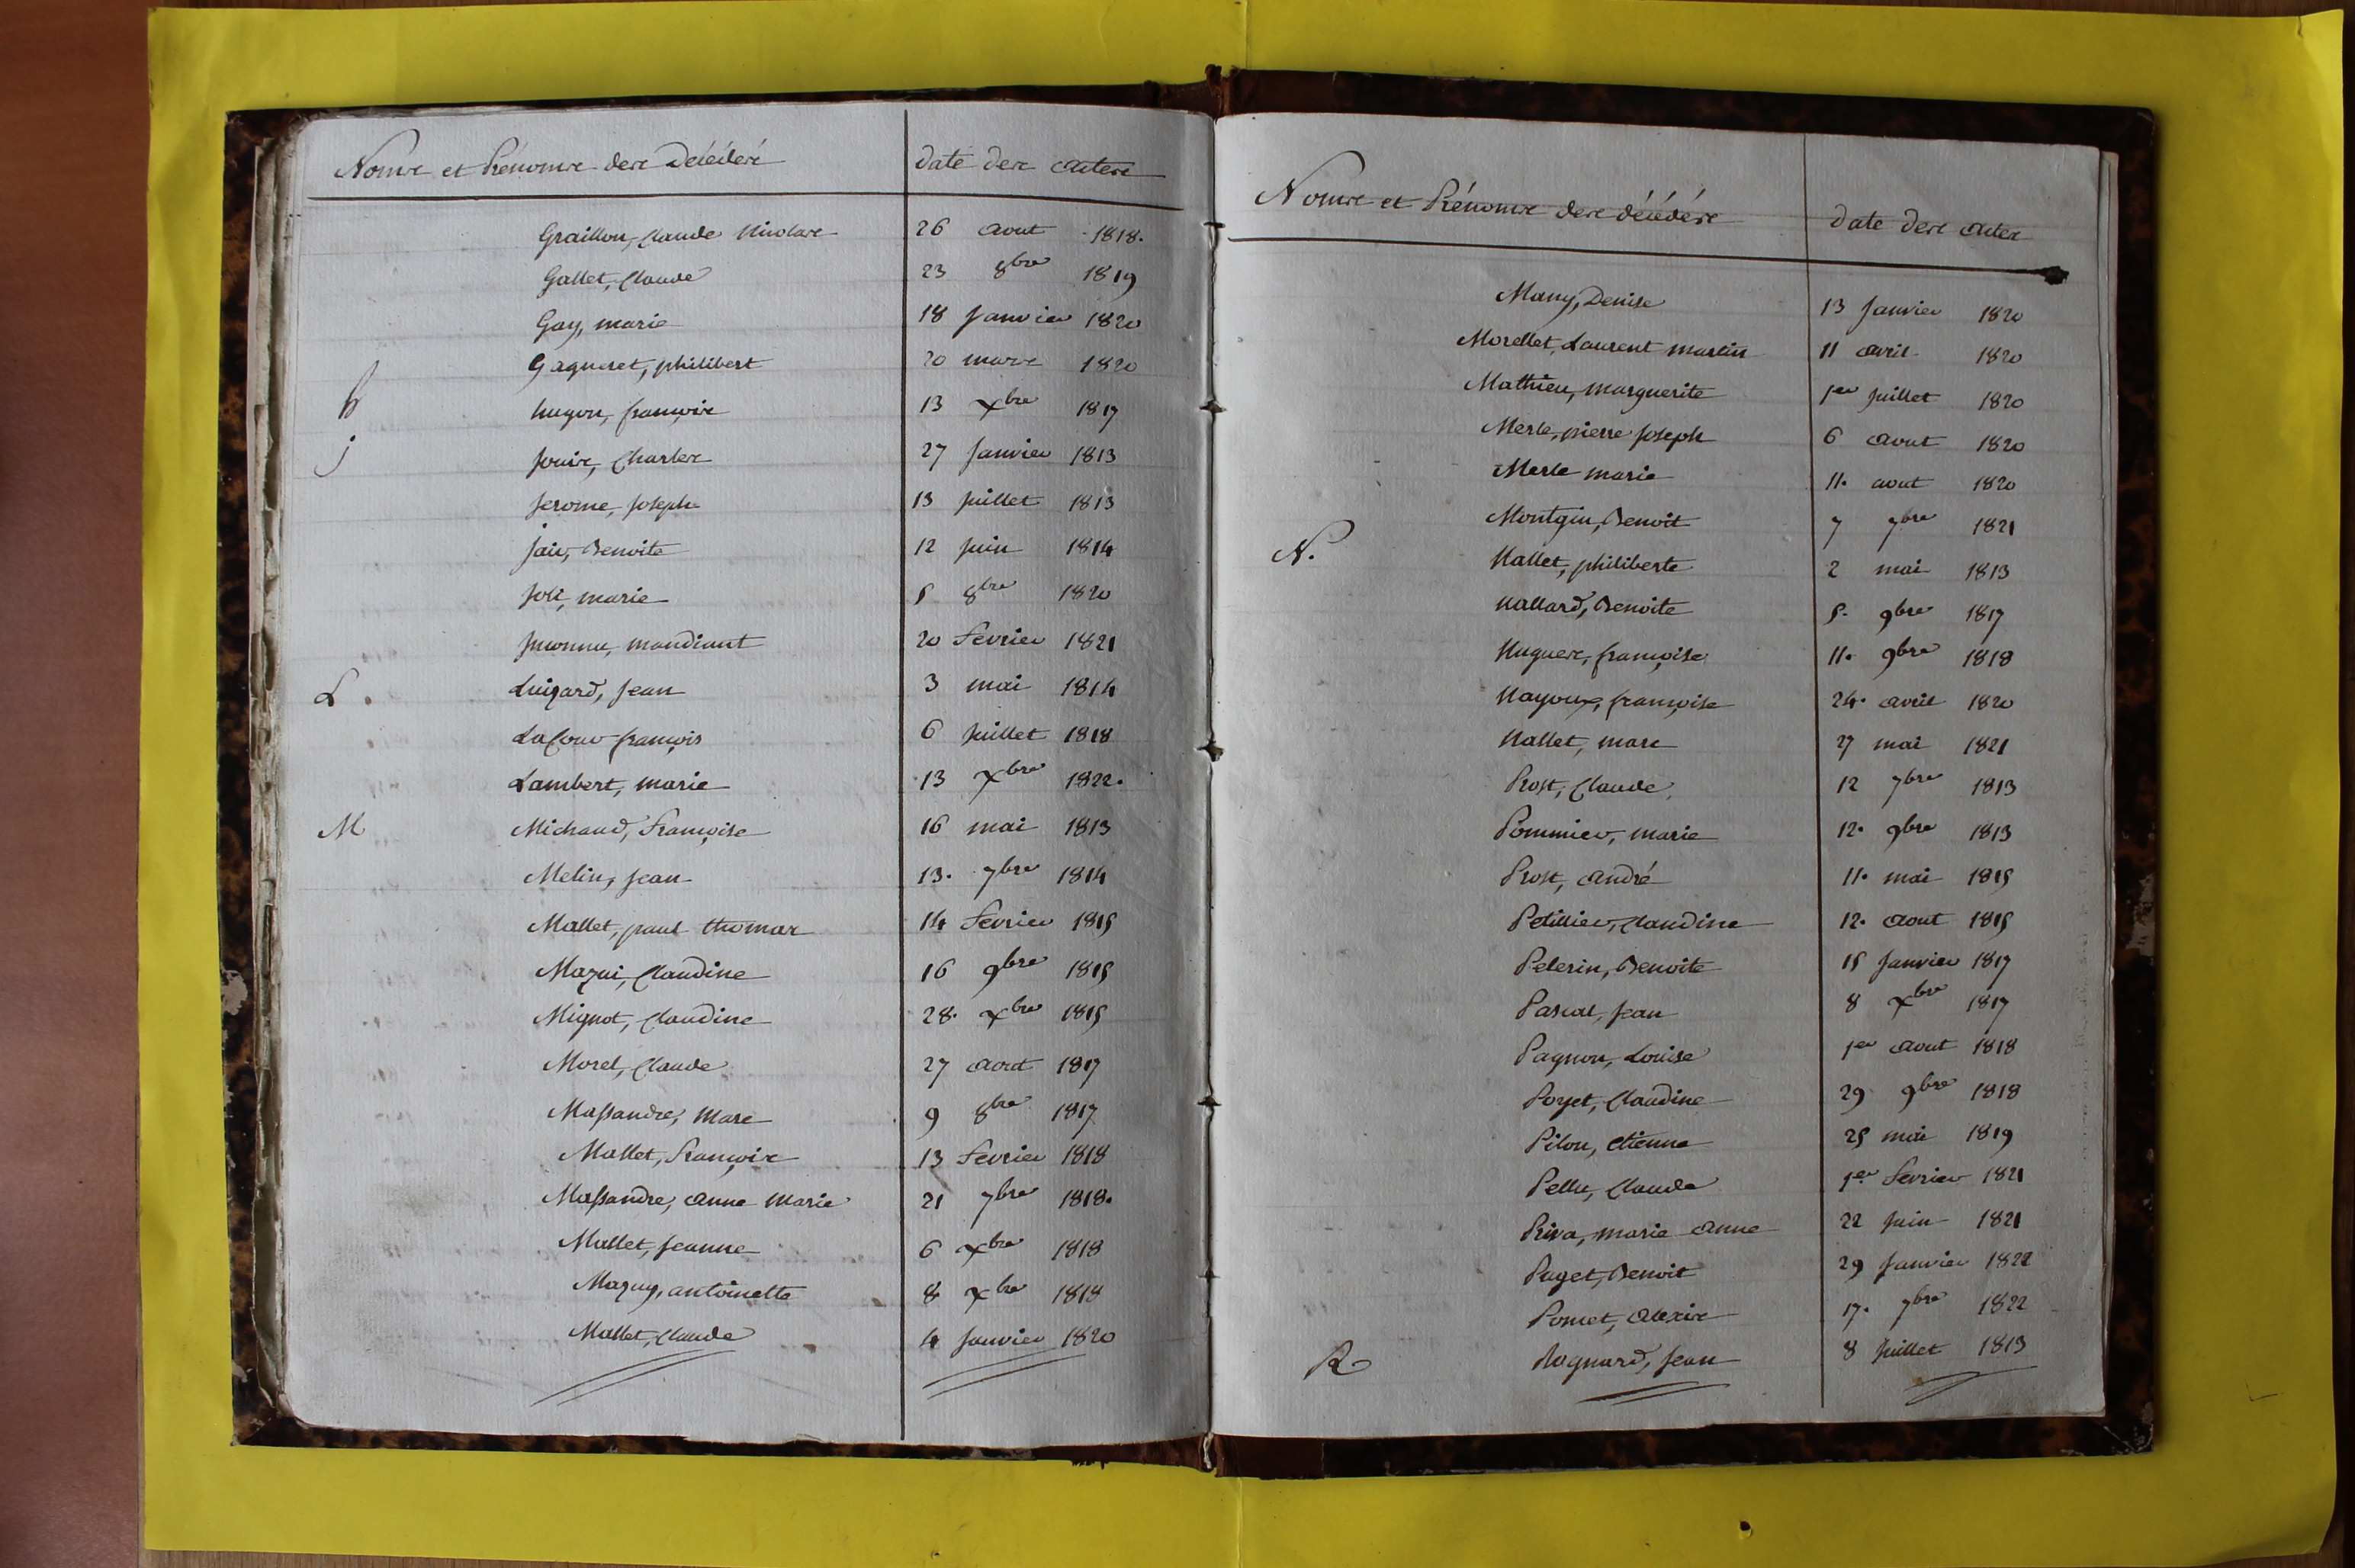 Noms et Prénoms des décédés date des actes
Graillon, Claude Nicolas 26 aout 1818.
Gallet, Claude 23 8bre 1819
Gay, marie 18 Janvier 1820
Gagneret, philibert 20 mars 1820
h hugon, françois 13 Xbre 1817
j Jouis, Charles 27 Janvier 1813
Jerome, Joseph 13 Juillet 1813
Jair, Benoite 12 Juin 1814
Joli, marie 5 8bre 1820
Inconnu, mandiant 20 Fevrier 1821
L. Luizard, Jean 3 mai 1814
LaCour françois 6 Juillet 1818
Lambert, marie 13 Xbre 1822.
M Michaud, Françoise 16 mai 1813
Melin, Jean 13. 7bre 1814
Mallet, paul thomas 14 Fevrier 1815
Mazui, Claudine 16 9bre 1815
Mignot, Claudine 28. Xbre 1815
Morel, Claude 27 aout 1817
Massandre, Marc 9 8bre 1817
Mallet, François 13 Fevrier 1818
Massandre, anne Marie 21 7bre 1818.
Mallet, Jeanne 6 Xbre 1818
Mazuy, antoinette 8 Xbre 1818
Mallet, Claude 4 Janvier 1820
Noms et Prénoms des décédés date des actes
Many, Denise 13 Janvier 1820
Morellet, Laurent martin 11 avril 1820
Mathieu, marguerite 1er Juillet 1820
Merle, pierre Joseph 6 aout 1820
Merle marie 11. aout 1820
Montgin, Benoit 7 7bre 1821
N. Nallet, philiberte 2 mai 1813
Nallard, Benoite 5. 9bre 1817
Nugues, françoise 11. 9bre 1818
Nayoux, françoise 24. avril 1820
Nallet, marc 27 mai 1821
Prost, Claude 12 7bre 1813
Pommier, marie 12. 9bre 1813
Prost, andré 11. mai 1815
Petillier, Claudine 12. aout 1815
Pelerin, Benoite 15 Janvier 1817
Pascal, Jean 8 Xbre 1817
Pagnon, Louise 1er aout 1818
Poyet, Claudine 29 9bre 1818
Pilon, etienne 25 mai 1819
Pellu, Claude 1er Fevrier 1821
Riva, marie anne 22 Juin 1821
Puget, Benoit 29 Janvier 1822
Pomet, alexis 17. 7bre 1822
R Rognard, Jean 8 Juillet 1813